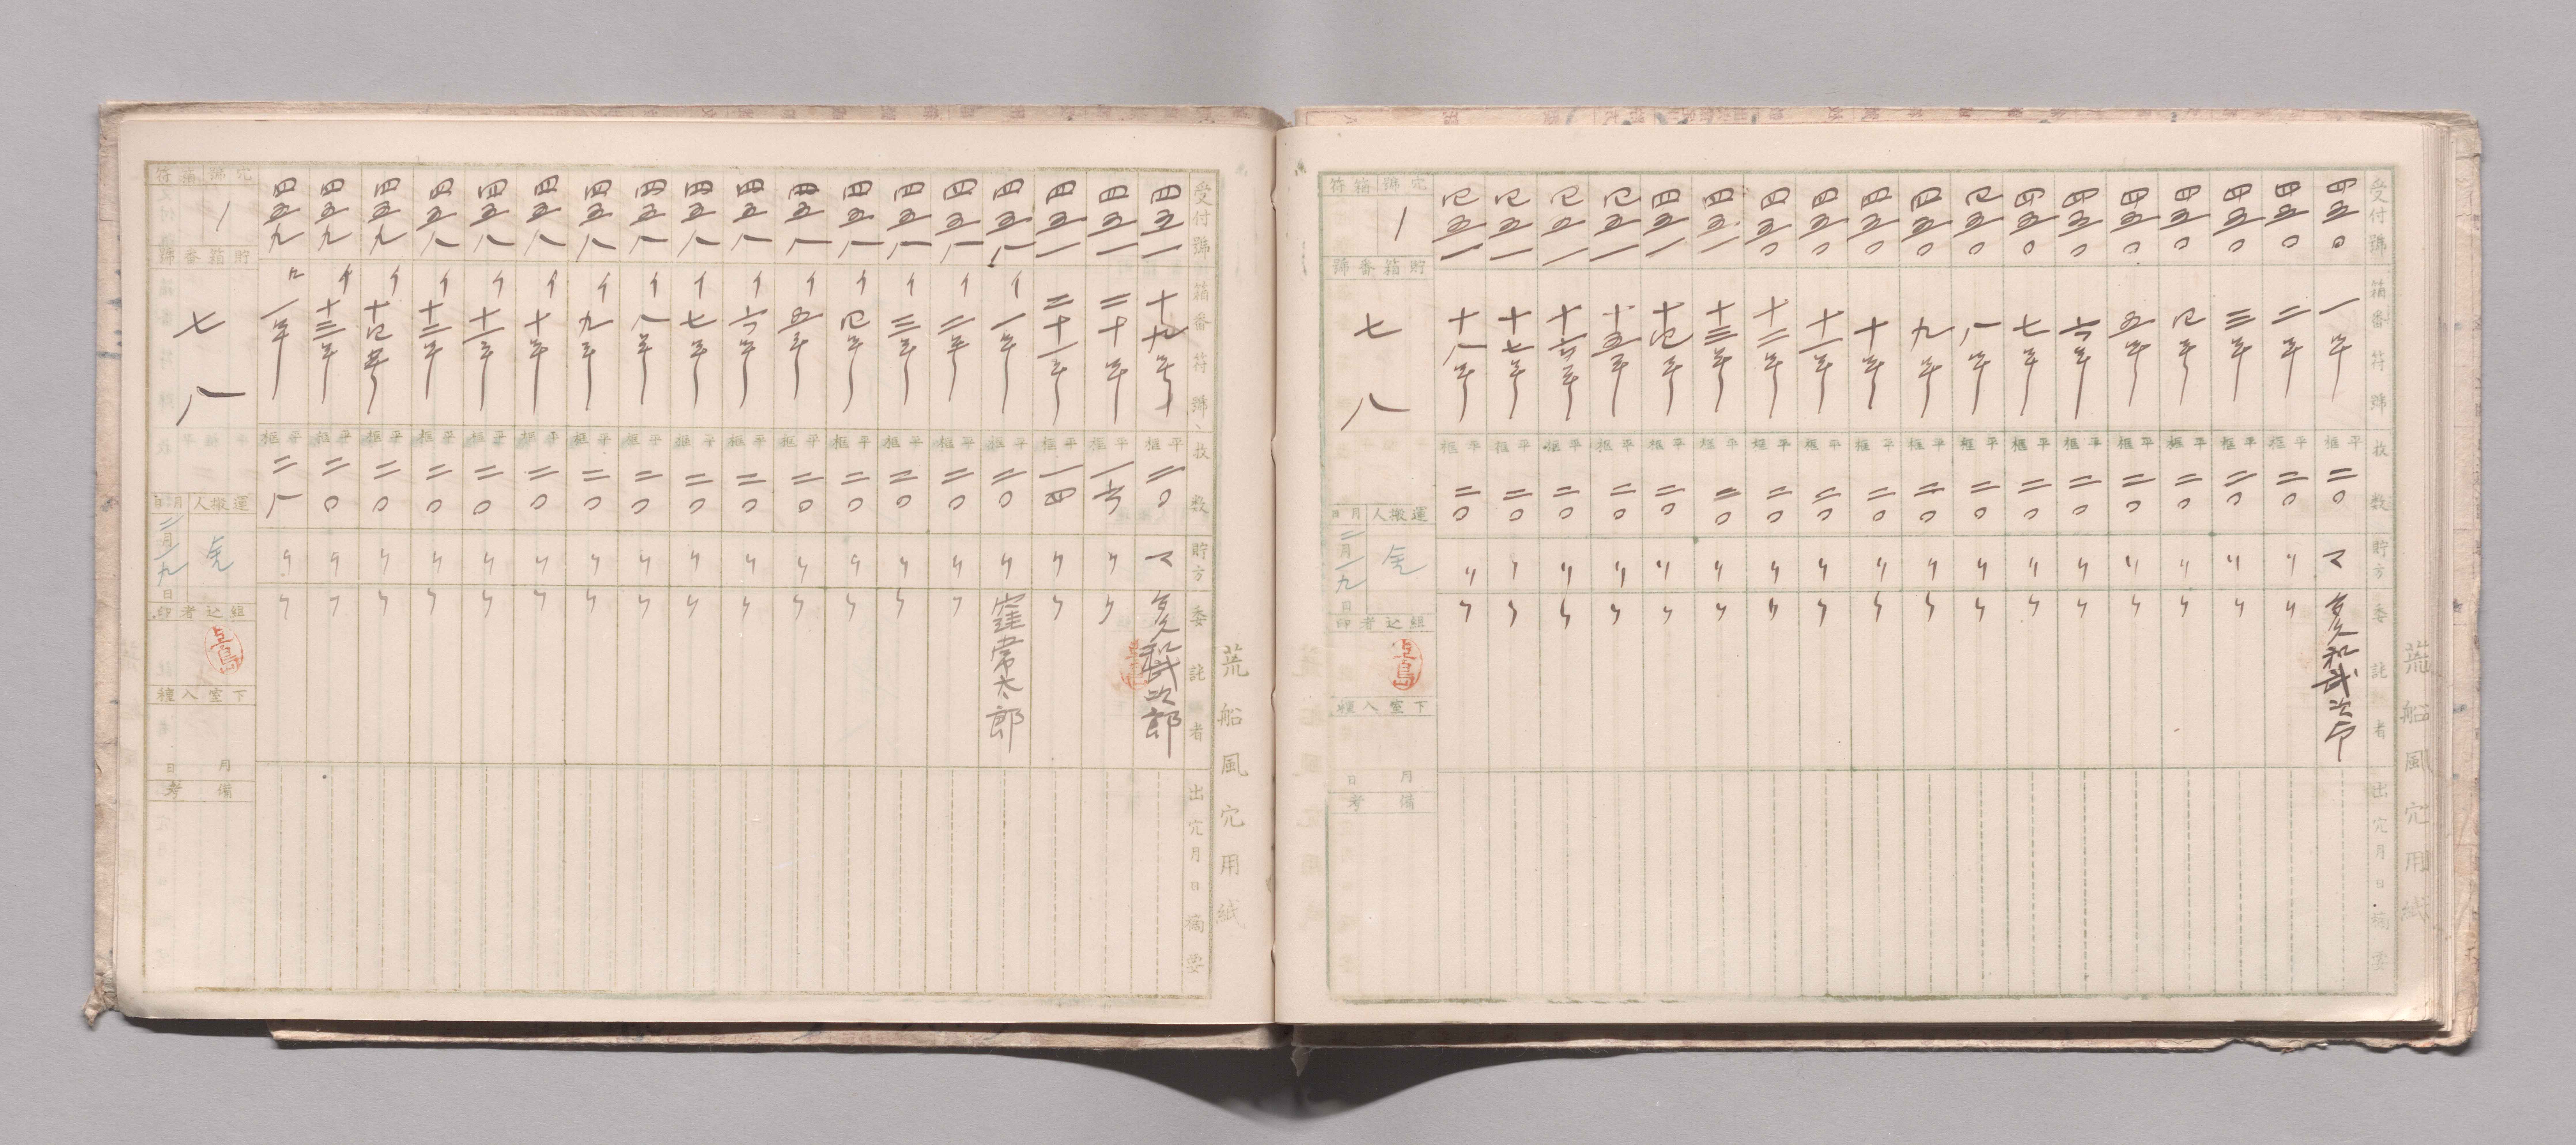 荒船風穴用紙
受付號 箱番符號 枚数 貯方 委託者 出穴月日摘要
四五〇 一号 平框 二〇 マ 和武次郎
四五〇 二号 平框 二〇 〃 〃
四五〇 三号 平框 二〇 〃 〃
四五〇 四号 平框 二〇 〃 〃
四五〇 五号 平框 二〇 〃 〃
四五〇 六号 平框 二〇 〃 〃
四五〇 七号 平框 二〇 〃 〃
四五〇 八号 平框 二〇 〃 〃
四五〇 九号 平框 二〇 〃 〃
四五〇 十号 平框 二〇 〃 〃
四五〇 十一号 平框 二〇 〃 〃
四五〇 十二号 平框 二〇 〃 〃
四五一 十三号 平框 二〇 〃 〃
四五一 十四号 平框 二〇 〃 〃
四五一 十五号 平框 二〇 〃 〃
四五一 十六号 平框 二〇 〃 〃
四五一 十七号 平框 二〇 〃 〃
四五一 十八号 平框 二〇 〃 〃
穴號箱符
一
貯箱番號
七八
運搬人 月日
二月一九日
組込者印
下室入種
月 日
備考
荒船風穴用紙
受付號 箱番符號 枚数 貯方 委託者 出穴月日摘要
四五一 十九号 平框 二〇 マ 和武次郎
四五一 二十号 平框 一六 〃 〃
四五一 二十一号 平框 一四 〃 〃
四五八 イ 一号 平框 二〇 〃 窪常太郎
四五八 イ 二号 平框 二〇 〃 〃
四五八 イ 三号 平框 二〇 〃 〃
四五八 イ 四号 平框 二〇 〃 〃
四五八 イ 五号 平框 二〇 〃 〃
四五八 イ 六号 平框 二〇 〃 〃
四五八 イ 七号 平框 二〇 〃 〃
四五八 イ 八号 平框 二〇 〃 〃
四五八 イ 九号 平框 二〇 〃 〃
四五八 イ 十号 平框 二〇 〃 〃
四五八 イ 十一号 平框 二〇 〃 〃
四五八 イ 十二号 平框 二〇 〃 〃
四五九 イ 十四号 平框 二〇 〃 〃
四五九 イ 十三号 平框 二〇 〃 〃
四五九 ロ 一号 平框 二八 〃 〃
穴號箱符
一
貯箱番號
七八
運搬人 月日
二月一九日
組込者印
下室入種
月 日
備考